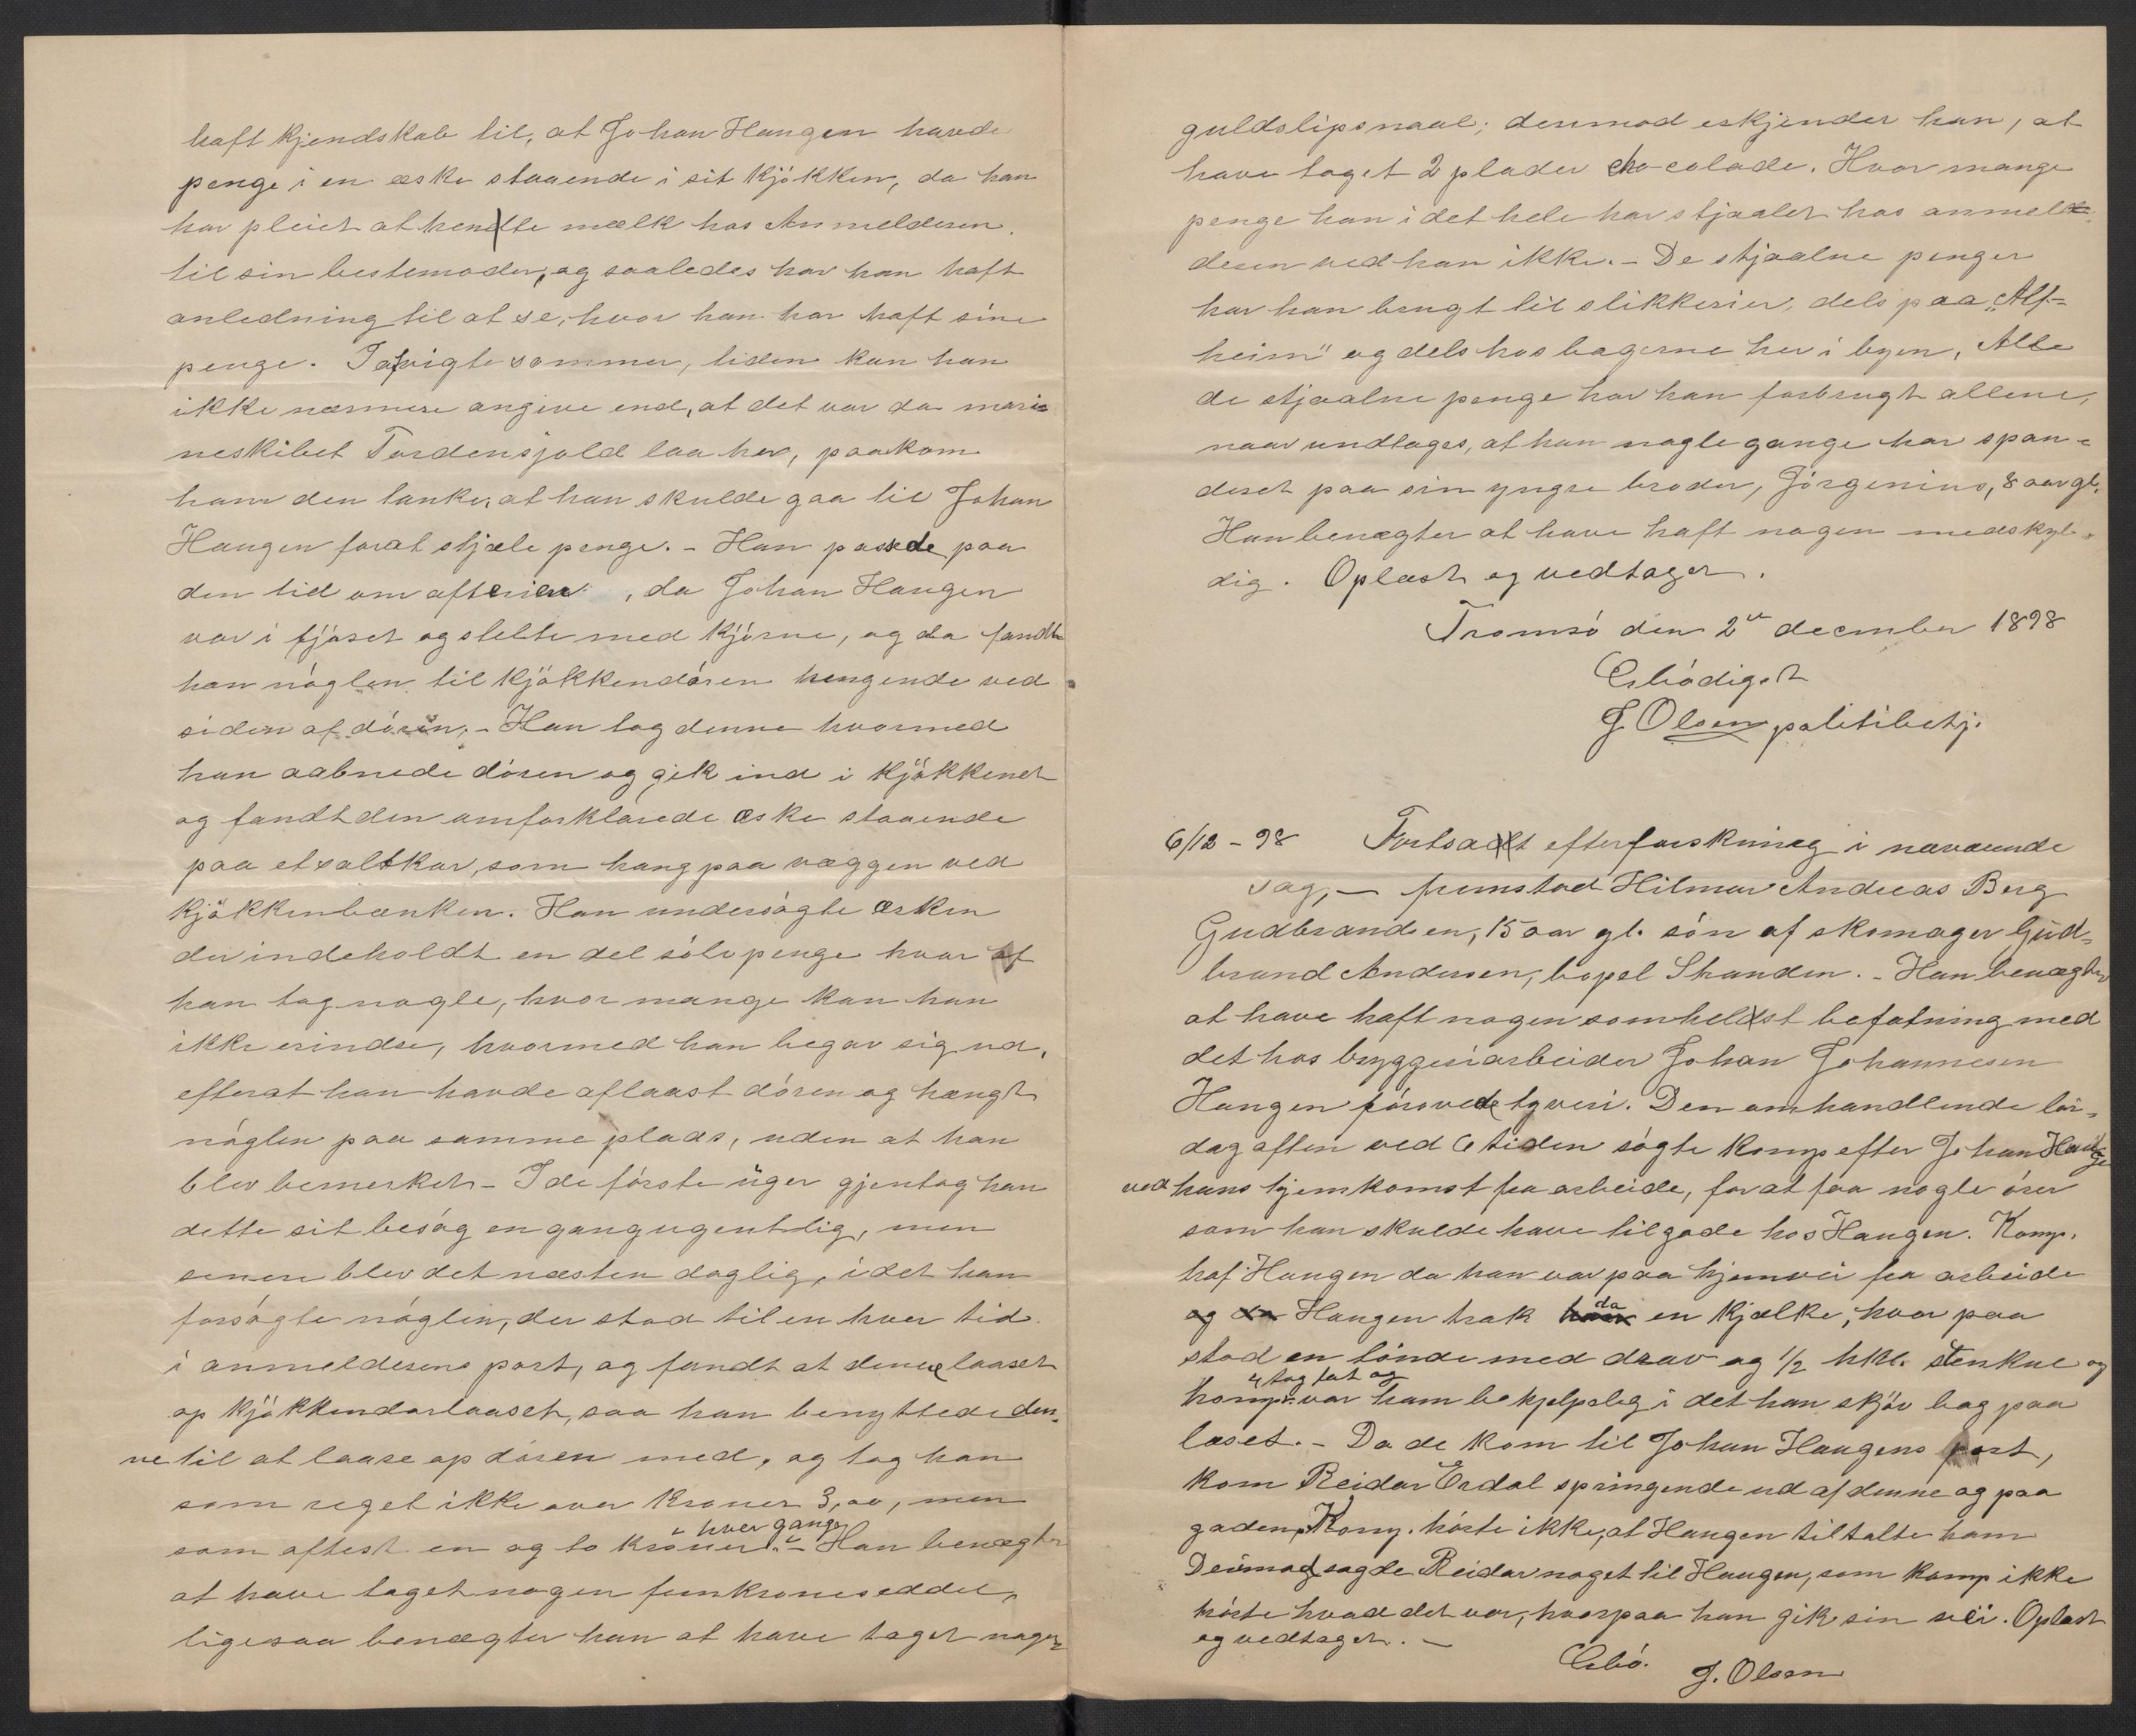 haft kjendskab til, at Johan Haugen havde
penge i en æske staaende i sit kjøkken, da han
har pleiet at hente mælk hos Anmelderen
til sin bestemoder, og saaledes har han haft
anledning til at se, hvor han har haft sine
penge. Iafvigte sommer, tiden kan han
ikke nærmere angive end, at det var da mari=
neskibet Tordensjold laa her, paakom
ham den tanke, at han skulde gaa til Johan
Haugen forat stjæle penge. - Han passede paa
den tid om aftenen, da Johan Haugen
var i fjøset og stelte med kjørne, og da fandt
han nøglen til kjøkkendøren hengende ved
siden af døren. - Han tog denne hvormed
han aabnede døren og gik ind i kjøkkenet
og fandt den omforklarede æske staaende
paa et saltkar, som hang paa væggen ved
kjøkkenbænken. Han undersøgte æsken
der indeholdt en del sølvpenge hvor af
han tog nogle, hvor mange kan han
ikke erindre, hvormed han begav sig ud,
efterat han havde aflaast døren og hængt
nøglen paa samme plads, uden at han
blev bemerket - I de første uger gjentog han
dette sit besøg en gang ugentlig, men
senere blev det næsten daglig, i det han
forsøgte nøglen, der stod til en hver tid
i anmelderens port, og fandt at denne laaset
op kjøkkendørlaaset, saa han benyttede den=
ne til at laase op døren med, og tog han
som reget ikke over kroner 3,00, men
som oftest en og to kroner hver gang. - Han benægter
at have taget nogen femkroneseddel,
ligesaa benægter han at have taget nogen
guldslipsnaal; derimod erkjender han, at
have taget 2 plader chocolade. Hvor mange
penge han i det hele har stjaalet hos anmel=
deren ved han ikke. - De stjaalne penger
har han brugt til slikkerier, dels paa „Alf=
heim" og dels hos bagerne her i byen, Alle
de stjaalne penge har han forbrugt allene,
naar undtages, at han nogle gange har span=
deret paa sin yngre broder, Jørgenius, 8 aar gl.
Han benægter at have haft nogen medskyl=
dig. Oplæst og vedtaget.
Tromsø den 2de december 1898
Erbødigst
J Olsen politibetj.
6/12 - 98 Fortsat efterforskning i nærværende
sag, - fremstod Hilmar Andreas Berg
Gudbrandsen, 15 aar gl. søn af skomager Gud=
brand Andersen, bopel Skanden. - Han benægter
at have haft nogen somhelst befatning med
det hos bryggeriarbeider Johan Johannesen
Haugen førøvede tyveri. Den omhandlende lør=
dag aften ved 6 tiden søgte komp efter Johan Haugen
ved hans hjemkomst fra arbeide, for at faa nogle ører
som han skulde have tilgode hos Haugen. Komp.
traf Haugen da han var paa hjemvei fra arbeide
og da Haugen trak da en kjælke, hvor paa
stod en tønde med drav og 1/2 hkl. stenkul og
komp. tog fat og var ham behjelpelig i det han skjøv bag paa
læset. - Da de kom til Johan Haugens port,
kom Reidar Erdal springende ud af denne og paa
gaden, Komp. hørte ikke, at Haugen tiltalte ham
Derimod sagde Reidar noget til Haugen, som komp ikke
hørte hvad det var, hvorpaa han gik sin vei. Oplæst
og vedtaget. -
Erbø. J. Olsen